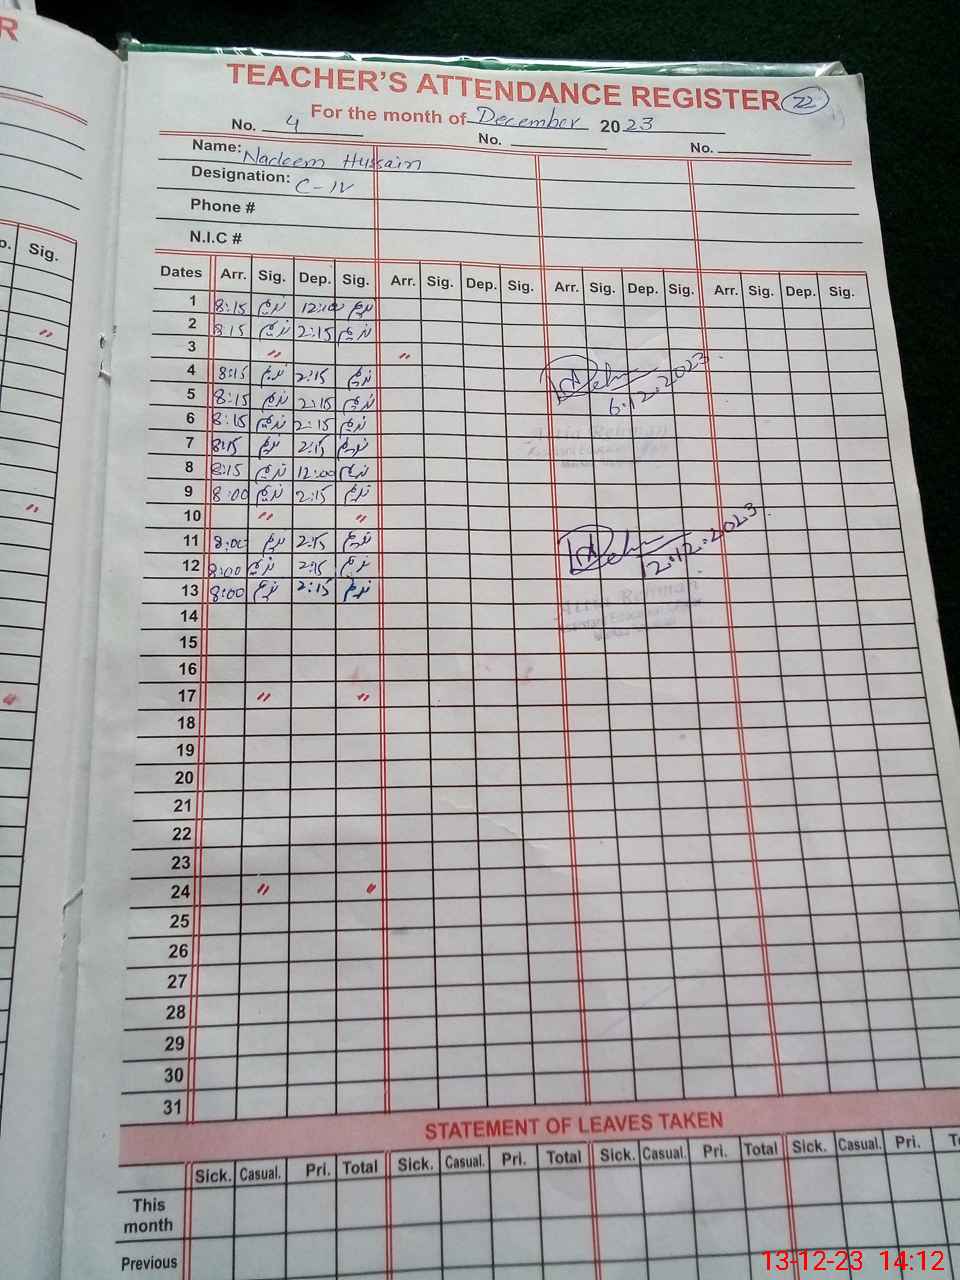 R
TEACHER'S ATTENDANCE REGISTER 22
For the month of December 2023
No. 4 No. No.
Name: Nadeem Hussain
Designation: C-IV
Phone #
N.I.C #
Sig.
Dates Arr. Sig. Dep. Sig. Arr. Sig. Dep. Sig. Arr. Sig. Dep. Sig. Arr. Sig. Dep. Sig.
1 8:15 ندیم 12:00 ندیم
2 8:15 ندیم 2:15 ندیم
3 " "
4 8:15 ندیم 2:15 ندیم
5 8:15 ندیم 2:15 ندیم
6.12.2023
6 8:15 ندیم 2:15 ندیم
7 8:15 ندیم 2:15 ندیم
8 8:15 ندیم 12:00 ندیم
9 8:00 ندیم 2:15 ندیم
10 " "
11 8:00 ندیم 2:15 ندیم
12 8:00 ندیم 2:15 ندیم
12.12.2023
13 8:00 ندیم 2:15 ندیم
Rehman
14
15
16
17 " "
18
19
20
21
22
23
24 " "
25
26
27
28
29
30
31
STATEMENT OF LEAVES TAKEN
Sick. Casual. Pri. Total Sick. Casual. Pri. Total Sick. Casual. Pri. Total Sick. Casual. Pri.
This
month
Previous
13-12-23 14:12